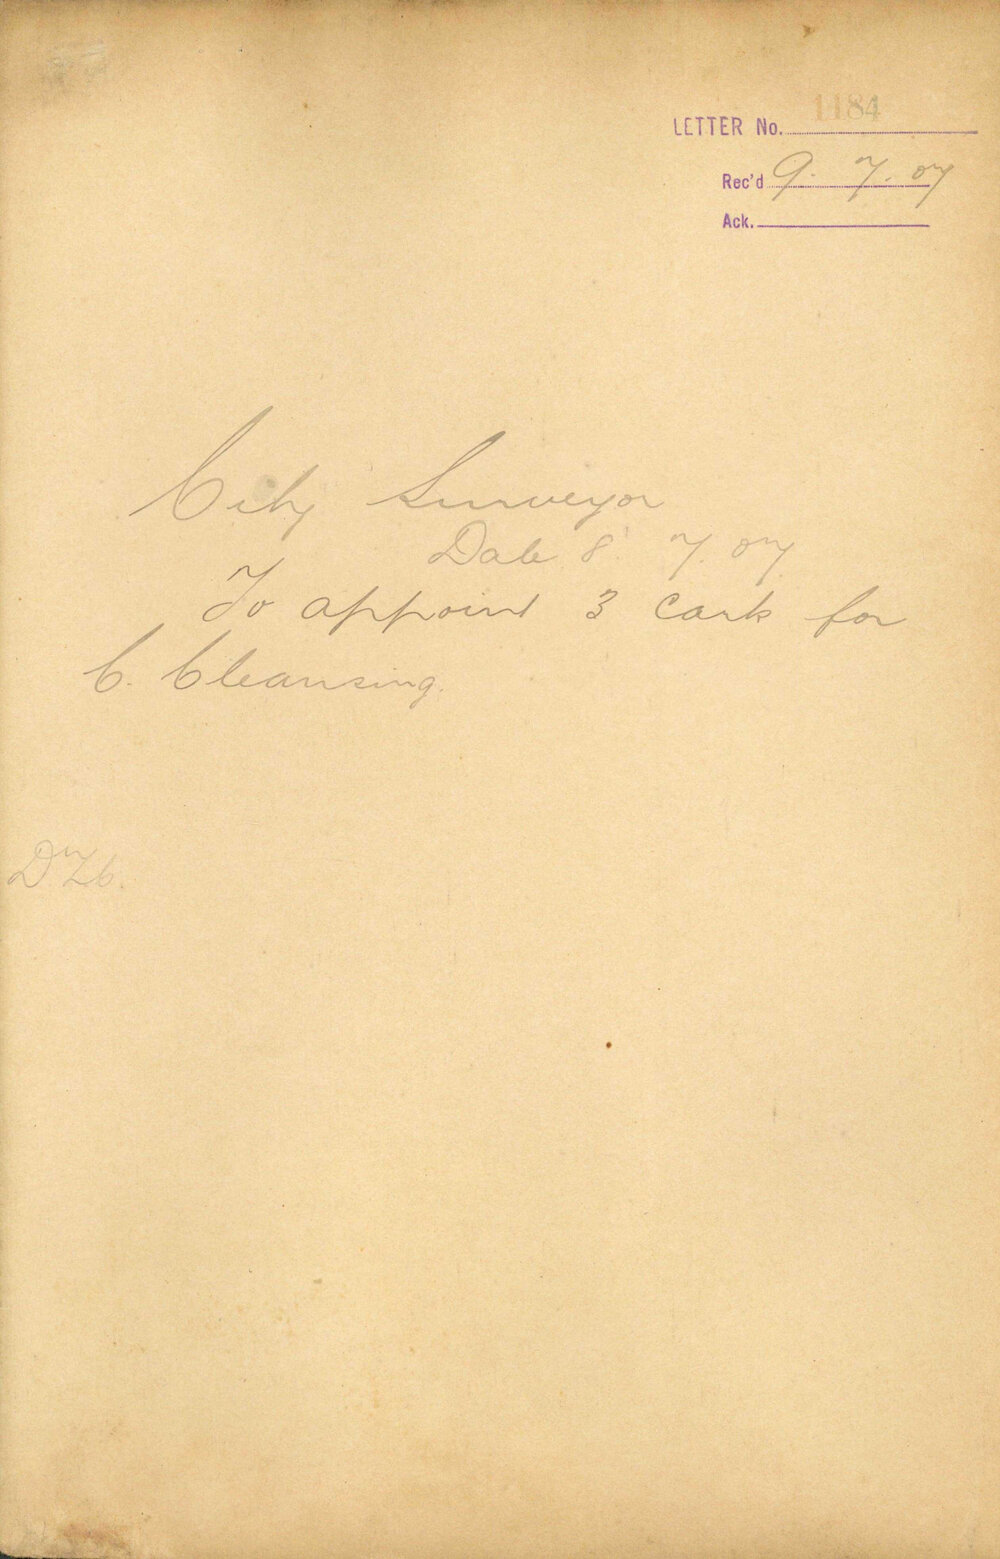 LETTER No. 1184
Rec'd 9. 7. 07
Ack.
City Surveyor
Date 8. 7. 07
To appoint 3 carts for
C. Cleansing.